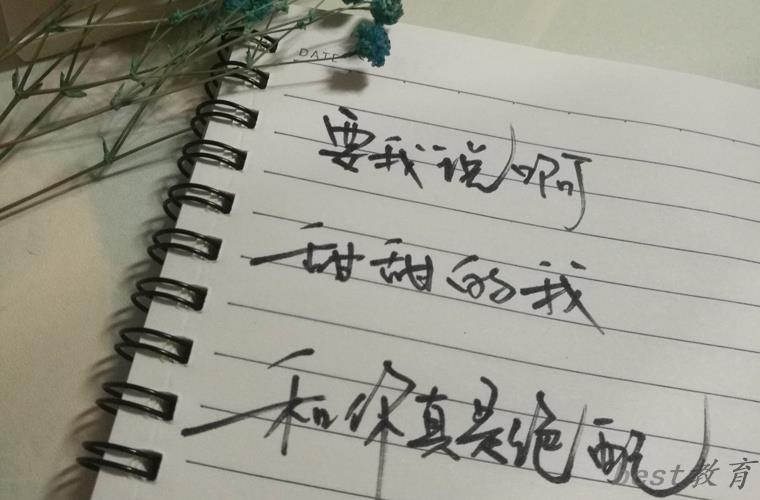 DATE
要我说啊
甜甜的我
和你真是绝配
best教育